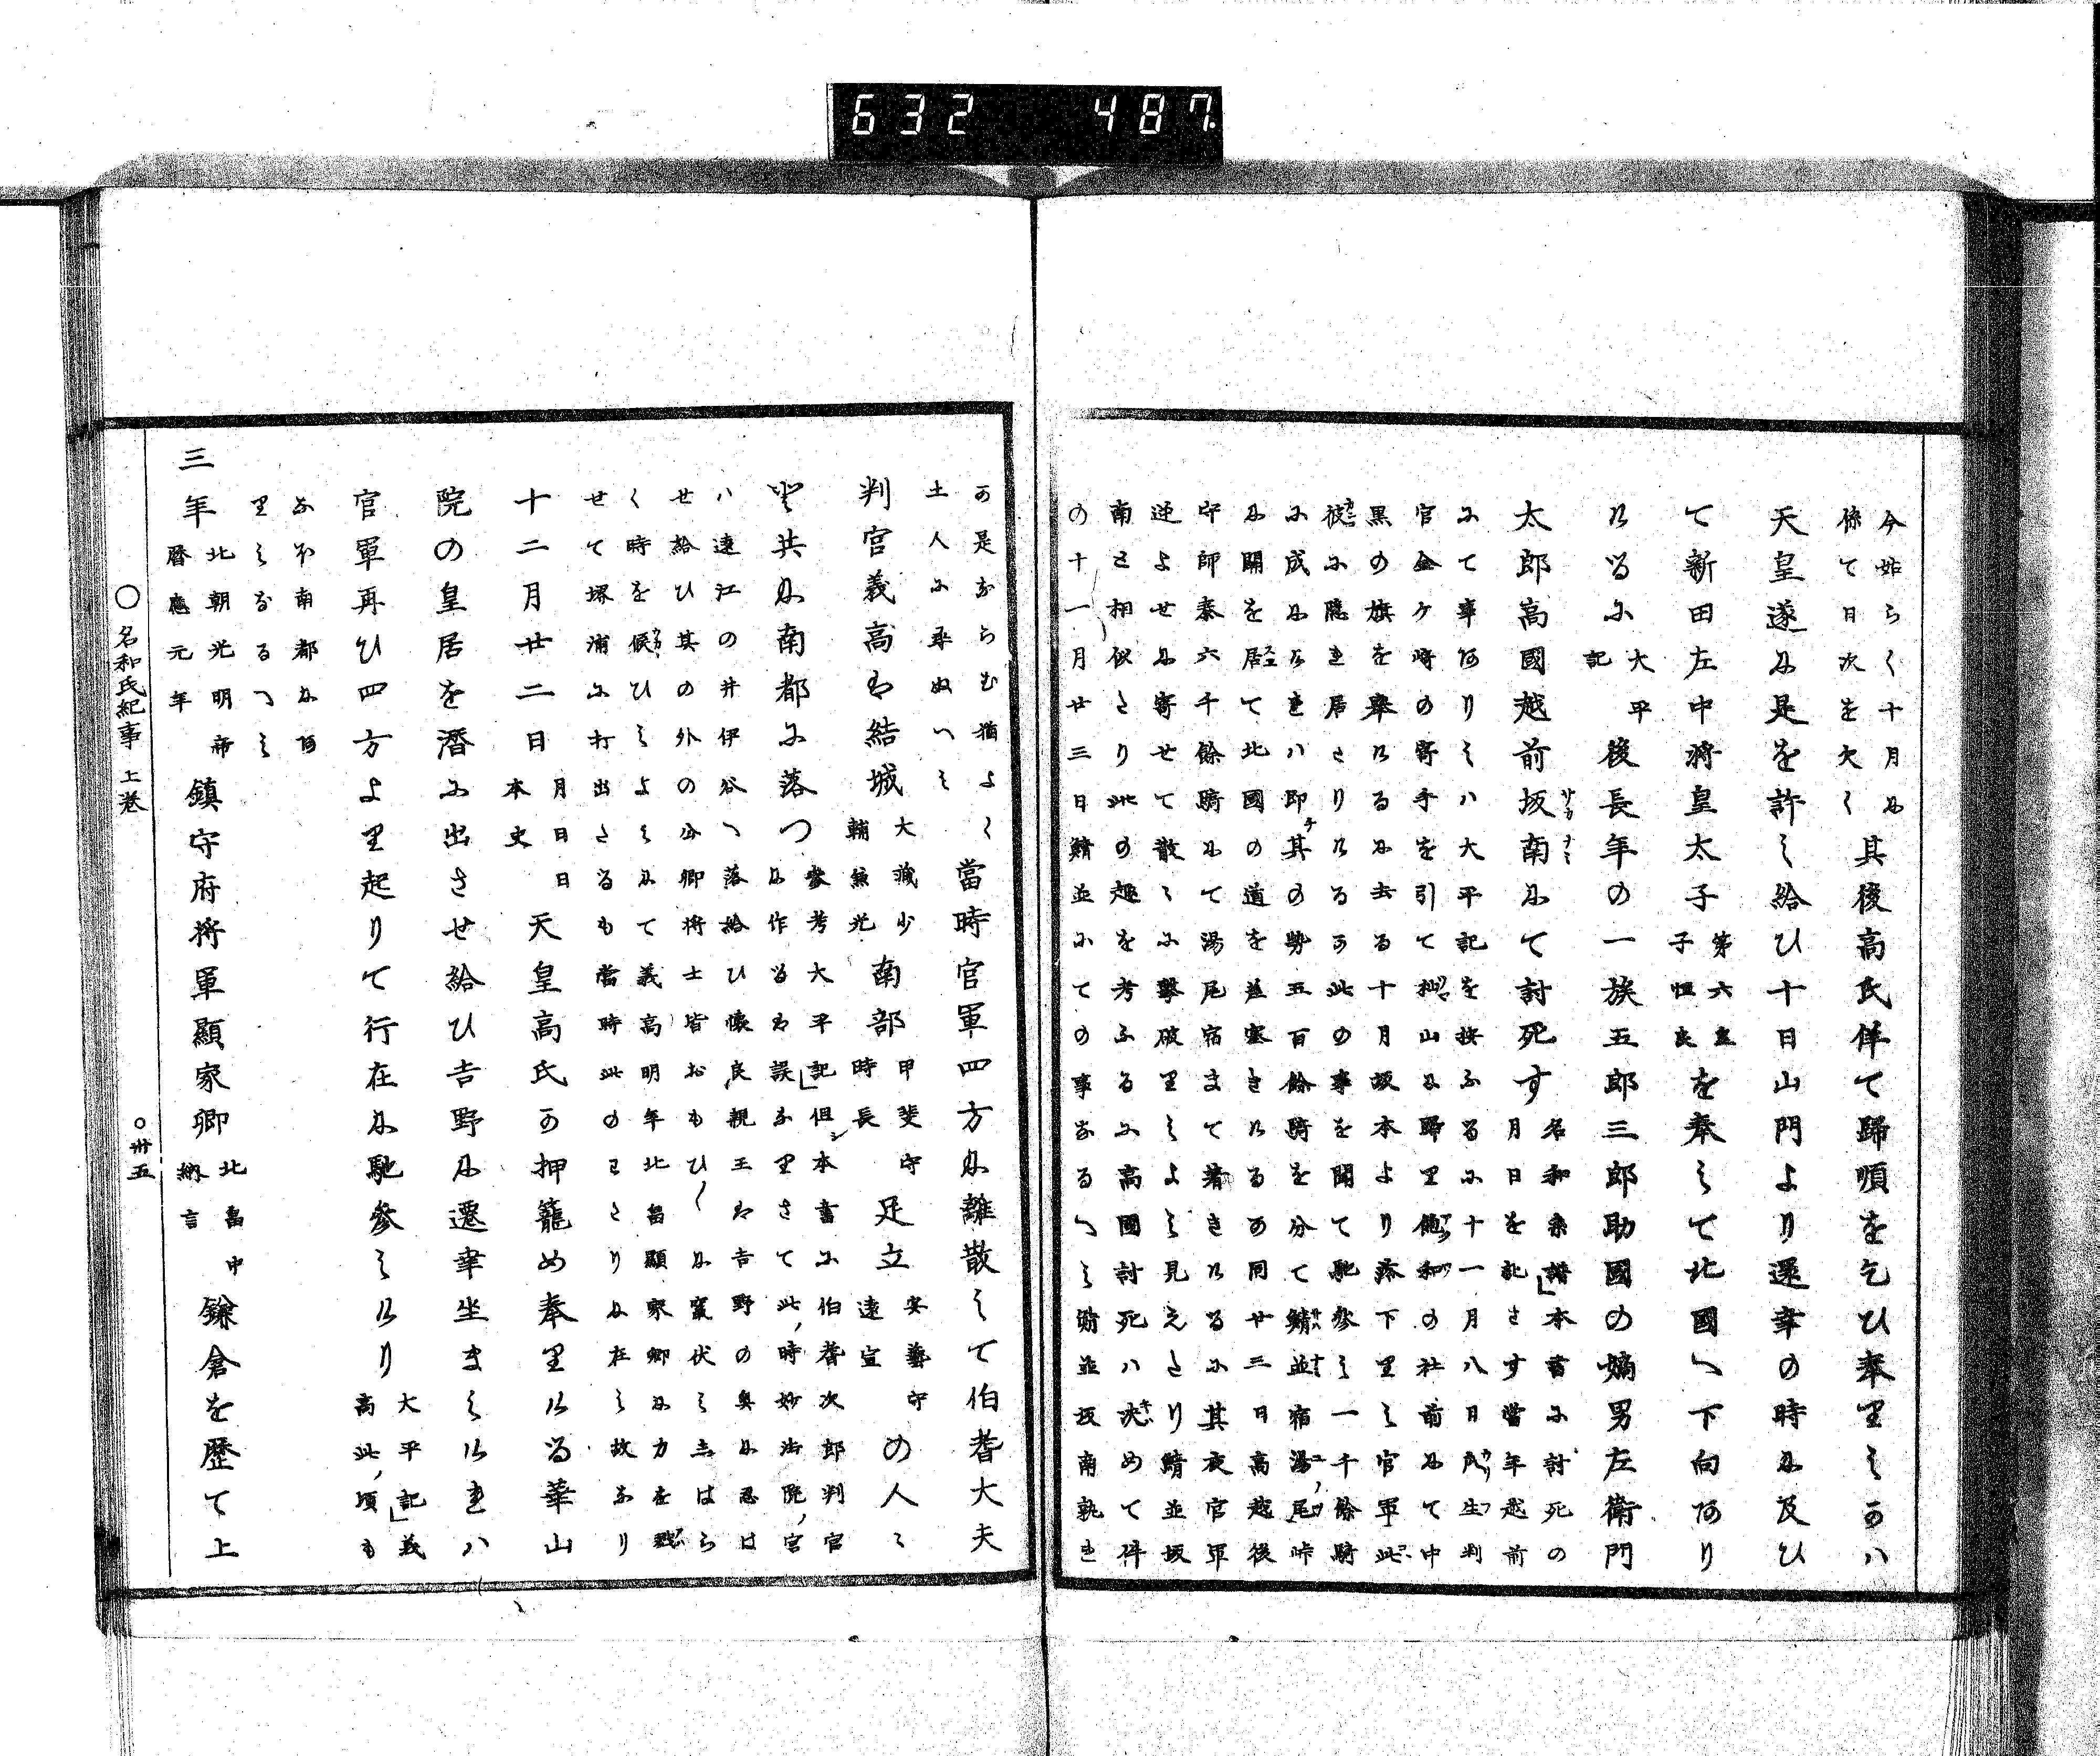 632 487
今姑らく十月に
係て日次を欠く 其後高氏佯て歸順を乞ひ奉里しかハ
天皇遂に是を許し給ひ十日山門より還幸の時に及ひ
て新田左中將皇太子第六皇子恒良を奉して北國へ下向あり
けるに大平記後長年の一族五郎三郎助國の嫡男左衛門
太郎高國越前坂南にて討死す名和系譜」本書に討死の
月日を記さす當年越前
にて事ありしハ大平記を按ふるに十一月八日民生判
官金ケ崎の寄手を引て
黒の旗を擧けるに去る十月坂本より
彼に隠れ居さりける
に成にけれハ即其の勢五百餘騎を分て鯖並宿湯尾峠
に關を居て北國の道を差塞きけるか同廿三日高越後
守師泰六千餘騎にて湯尾宿まて着きけるに其夜官軍
逆よせに寄せて散々に擊破里しよし見えたり鯖並坂
南と相似たり此の趣を考ふるに高國討死ハ決めて件
の十一月廿三日鯖並にての事なるへし鯖並坂南孰れ
か是ならむ猶よく
土人に尋ぬへし 當時官軍四方に離散して伯耆大夫
判官義高は結城大藏少輔親光南部甲斐守時長足立安藝守遠宣の人々
と共に南都に落つ參考大平記」但本書に伯耆次郎判官
に作るは誤な里さて此時妙法院宮
ハ遠江の井伊谷へ落給ひ懐良親王は吉野の奥に忍は
せ給ひ其の外の公卿將士皆おもひ〱に竄伏し志はら
く時を候ひしよしにて義高明年北畠顯家卿に力を戮
せて堺浦に打出たるも當時此のわたりに在し故なり
十二月廿二日月日日本史天皇高氏か押籠め奉里ける華山
院の皇居を潛に出させ給ひ吉野に遷幸坐ましけれハ
官軍再ひ四方よ里起りて行在に馳參しけり大平記」義高此頃も
なほ南都にあ
里しなるへし
三年北朝光明帝暦應元年鎮守府將軍顯家卿北畠中納言鎌倉を歴て上
〇名和氏紀事 上巻
〇卅五